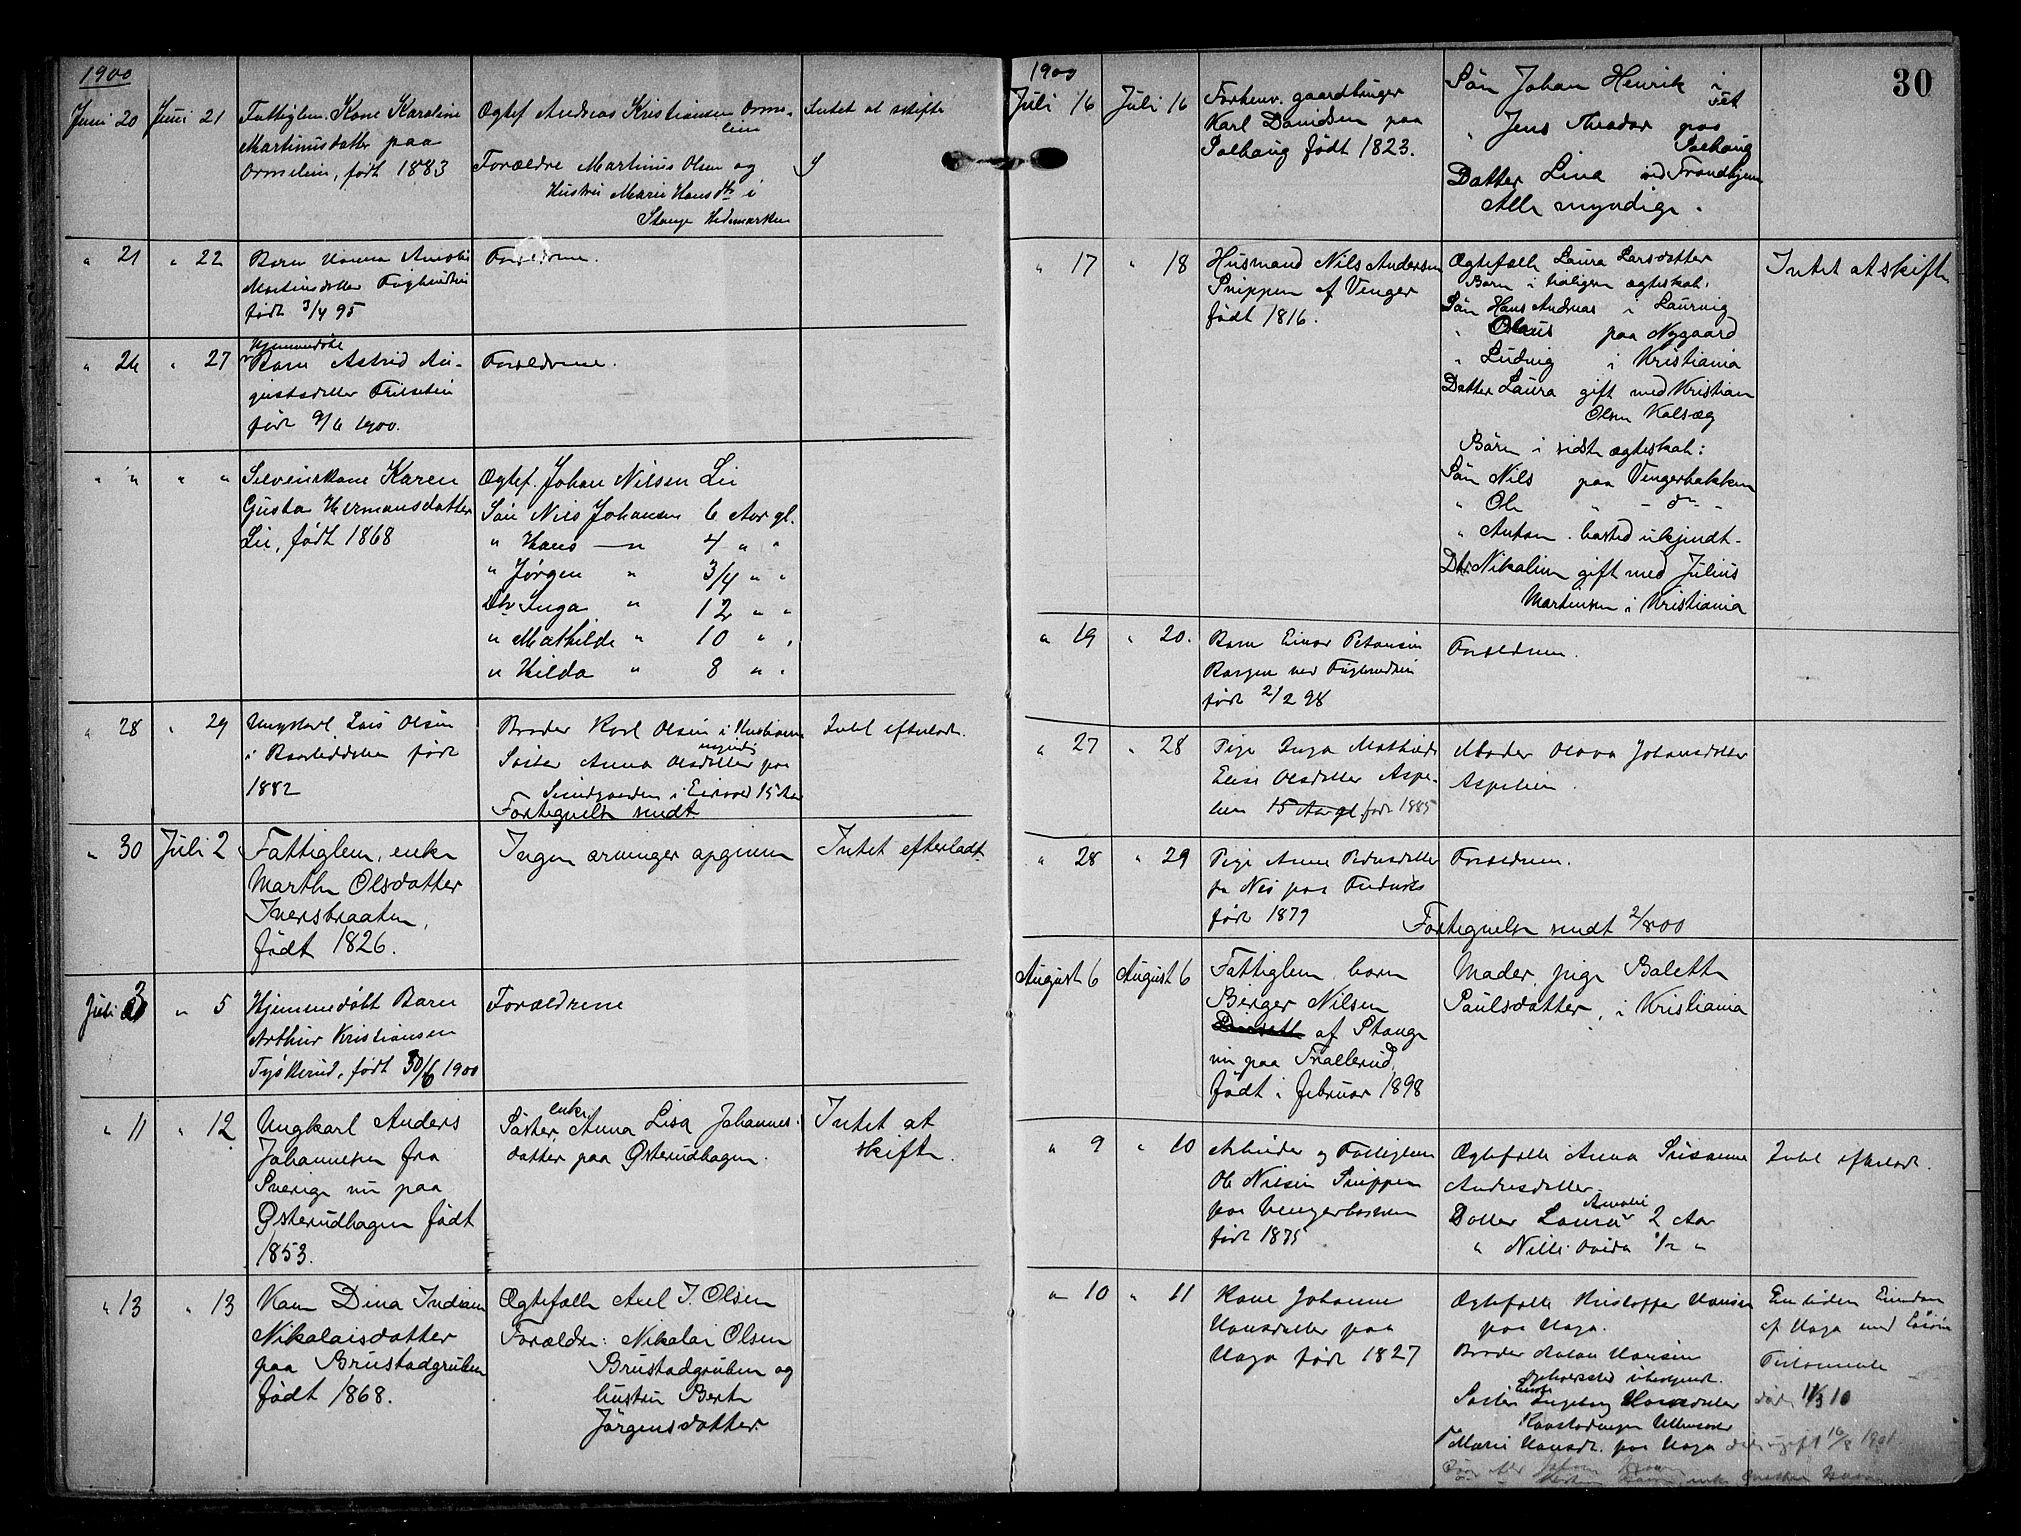 1900
Juni 20 Juni 21 Fattiglem, Kone Karoline Ægtef Andreas Kristiansen Orme- Intet at skifte
lien
Martinusdatter paa
Ormelien, født 1883
Forældre Martinus Olsen og
Hustru Marie Hansdtr i
Stange Hedemarken
" 21 " 22 Barn Hanna Amalie Forældrene.
Martinsdatter
født 3/4 95
" 26 " 27 Hjemmedøbt
Barn Astrid Au- Forældrene.
gustsdatter
født 9/6 1900.
" " " " Selveierkone Karen
Gusta Hermansdatter
Lie, født 1868
Ægtef. Johan Nilsen Lie
Søn Nils Johansen 6 Aar gl.
" Hans — " 4 " "
" Jørgen " 3/4 " "
Dtr Inga " 12 " "
" Mathilde " 10 " "
" Hilda " 8 " "
" 28 " 29 Ungkarl Lars Olsen
født
1882
Broder Karl Olsen i Kristiania
myndig
Søster Anna Olsdatter paa
i Eidsvold 15 Aar
Fortegnelse sendt
Intet efterladt.
" 30 Juli 2 Fattiglem, enke
Marthe Olsdatter
Iversbraaten,
født 1826.
Ingen arvinger opgiven
Intet efterladt
Juli 3 " 5 Hjemmedøbt Barn
Arthur Kristiansen
Tyskerud, født 30/6 1900
Forældrene
" 11 " 12 Ungkarl Anders
Johannesen fra
Sverige nu paa
Østerudhagen født
1853.
enke
Søster, Anna Lisa Johannes-
datter paa Østerudhagen.
Intet at
skifte.
" 13 " 13 Kone Dina Indiane
Nikolaisdatter
paa Brustadgruben
født 1868.
Ægtefælle Axel J. Olsen
Forældre: Nikolai Olsen
Brustadgruben og
hustru Berte
Jørgensdatter.
30
1900
Juli 16 Juli 16 Forhenv. gaardbruger
Karl Davidsen paa
Solhaug født 1823.
Søn Johan Henrik i
Fet
" Jens Theodor paa
Solhaug
Datter Lina ved Trondhjem
Alle myndige.
" 17 " 18 Husmand Nils Andersen
Snippen af Venger
født 1816.
Ægtefælle Laura Larsdatter
Børn i tidligere ægteskab:
Søn Hans Andreas i Laurvig
" Olaus paa Nygaard
" Ludvig i Kristiania
Datter Laura gift med Kristian
Olsen Kalsæg
Børn i sidste ægteskab:
Søn Nils paa Vengerbakken
" Ole " - do - "
" Anton. bosted ukjendt -
Dtr Nikoline gift med Julius
Martinsen i Kristiania
Intet at skifte
" 19 " 20. Barn Einar Petersen
født 2/2 98
Forældrene.
" 27 " 28 Pige Inga Mathilde
Elise Olsdatter Aspe-
lien 15 Aar gl. født 1885
Moder Olava Johansdatter
Aspelien.
" 28 " 29 Pige Anne
født 1879
Forældrene.
Fortegnelse sendt 2/8 00
August 6 August 6 Fattiglem, barn
Birger Nilsen
af Stange
nu paa Trøllerud,
født i februar 1898
Moder, pige Bolette
Paulsdatter, i Kristiania
" 9 " 10 Arbeider og Fattiglem
Ole Nilsen Snippen
paa Vengerbakken
født 1875
Ægtefælle Anna Susanne
Andersdatter
Amalie
Datter Laura 2 Aar
" Nilli Ovida 1/2 "
Intet efterladt.
" 10 " 11 Kone Johanne
Hansdatter paa
Haga født 1827
Ægtefælle Kristoffer Hansen
paa Haga.
Broder Johan Hansen
opholdssted ubekjendt.
Enke
Søster Ingeborg Hansdatter
Ullensaker
" Marie Hansdt. paa Haga 16/8 1901
En liden Eiendom
af Haga med Løsøre
Testamente
dat 11/3 10